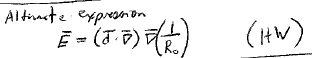 Alternate expression
Ē = (d̄·∇̄) ∇̄(1/R₀) (HW)